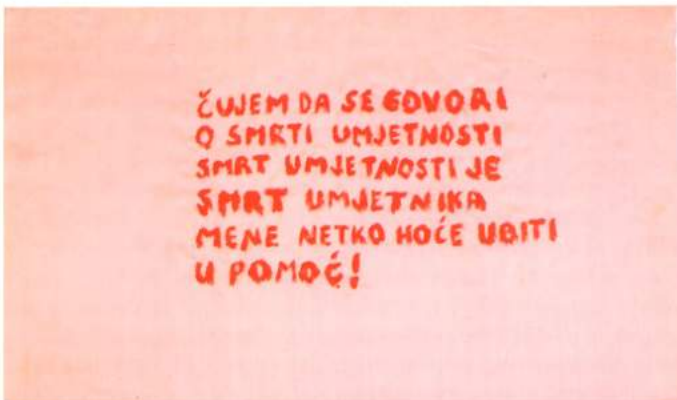 ČUJEM DA SE GOVORI
O SMRTI UMJETNOSTI
SMRT UMJETNOSTI JE
SMRT UMJETNIKA
MENE NETKO HOĆE UBITI
U POMOĆ!